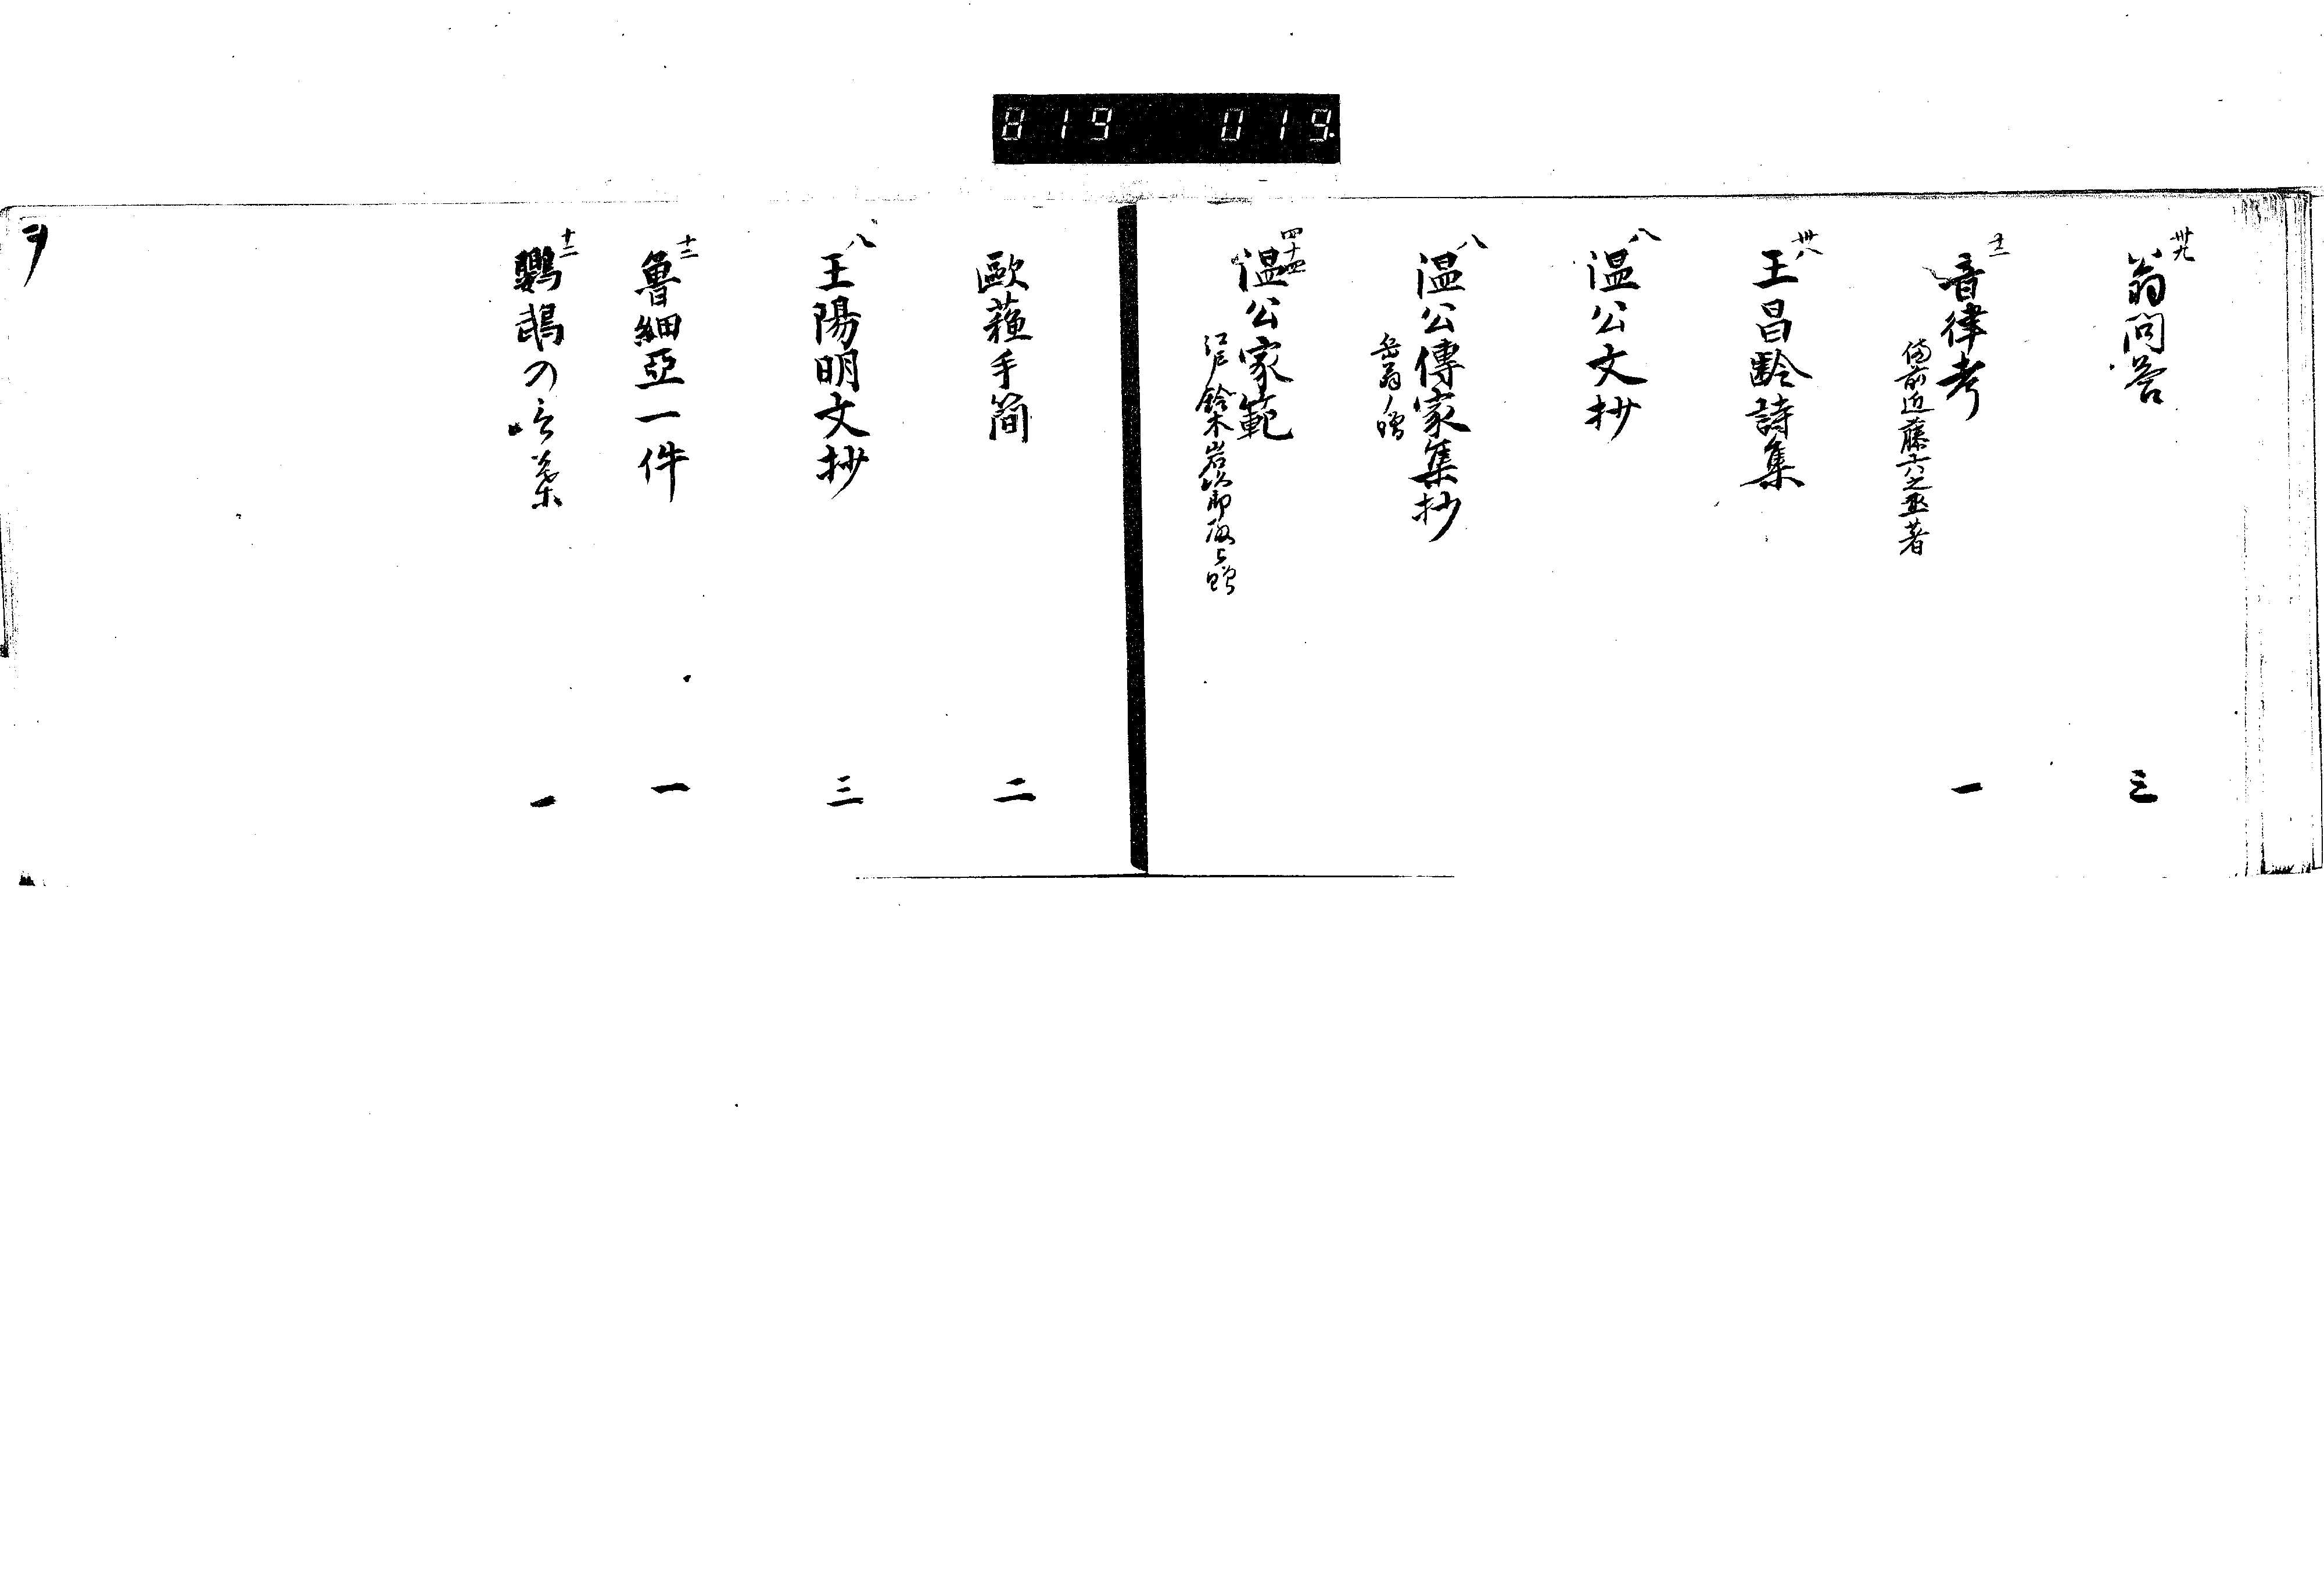 819 019
卅九
翁問答 三
十一
音律考 一
備前近藤六之丞著
卅八
王昌齡詩集
八
温公文抄
八
温公傳家集抄
岳翁ノ贈
四十四
温公家範
江戸鈴木岩次郎
歐蘓手簡 二
八
王陽明文抄 三
十三
魯細亞一件 一
十二
鸚鵡の言葉 一
ヲ